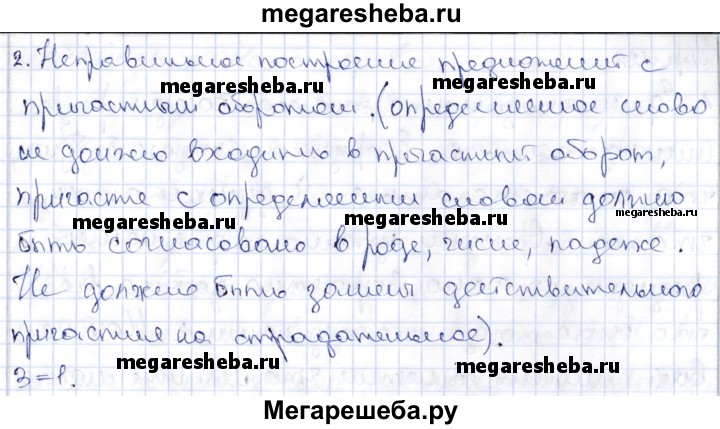 megaresheba.ru
2. Неправильное построение предложений с
megaresheba.ru megaresheba.ru
причастным оборотом. (определяемое слово
не должно входить в причастный оборот,
причастие с определяемым словом должно
megaresheba.ru megaresheba.ru megaresheba.ru
быть согласовано в роде, числе, падеже.
Не должно быть замены действительного
причастия на страдательное).
megaresheba.ru megaresheba.ru
3=1.
Мегарешеба.ру